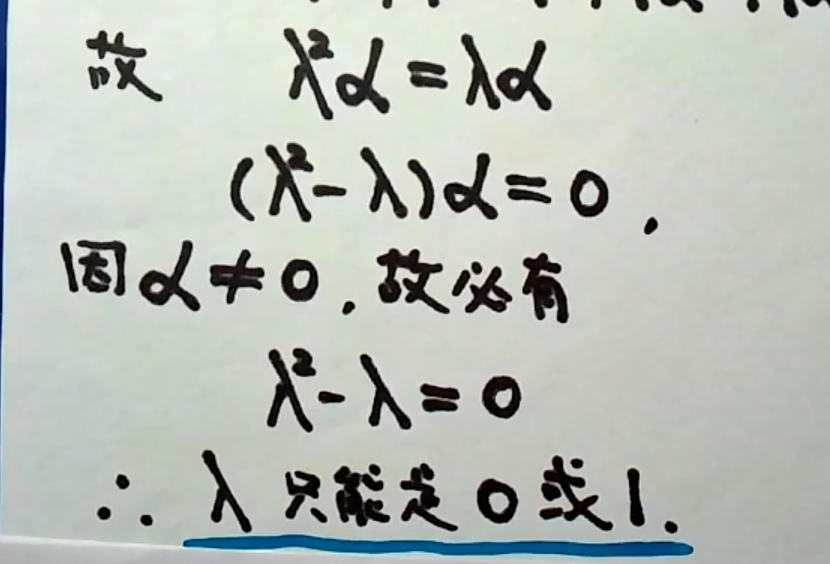 故 λ²α=λα
(λ²-λ)α=0.
因α≠0.故必有
λ²-λ=0
∴ λ只能是0或1.